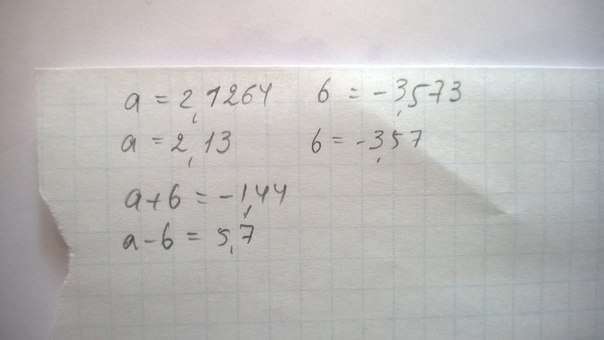 a = 2,1264 b = -3,573
a = 2,13 b = -3,57
a+b = -1,44
a-b = 5,7